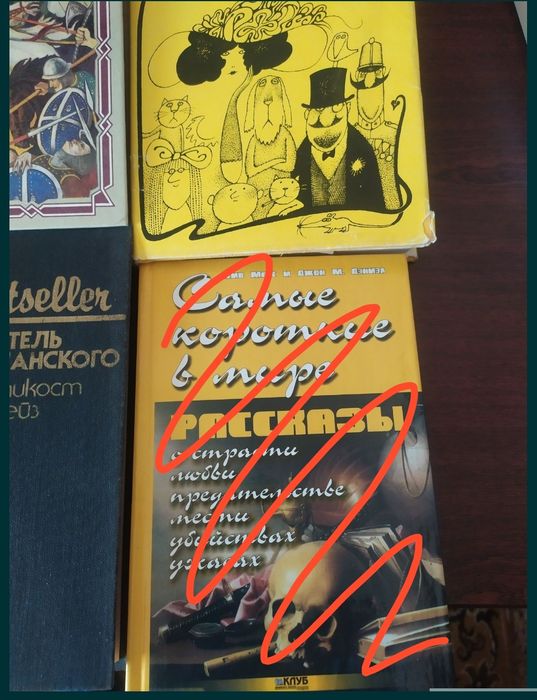 tseller
ТЕЛЬ
АНСКОГО
икост
ейз
Стив Мосс и Джон М. Дэниэл
Самые
короткие
в мире
РАССКАЗЫ
о страсти
любви
предательстве
мести
убийствах
ужасах
КЛУБ